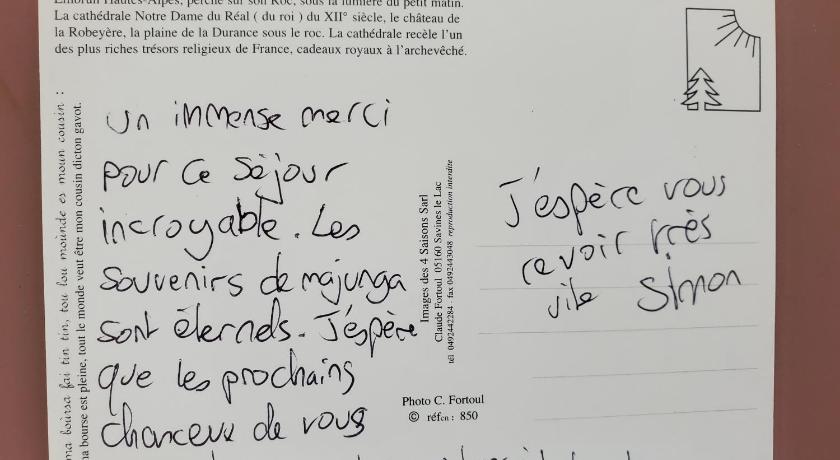 Embrun Hautes-Alpes, perché sur son Roc, sous la lumière du petit matin.
La cathédrale Notre Dame du Réal ( du roi ) du XII° siècle, le château de
la Robeyère, la plaine de la Durance sous le roc. La cathédrale recèle l'un
des plus riches trésors religieux de France, cadeaux royaux à l'archevêché.
ma boursa fai tin tin, tou lou mounde es moun cousin :
ma bourse est pleine, tout le monde veut être mon cousin dicton gavot.
un immense merci
pour ce séjour
incroyable. Les
souvenirs de majunga
sont éternels. J'éspère
que les prochains
chanceux de vous
Images des 4 Saisons Sarl
Claude Fortoul 05160 Savines le Lac
tél 0492442284 - fax 0492443048 reproduction interdite
Photo C. Fortoul
© réfcn : 850
J'espère vous
revoir très
vite Simon